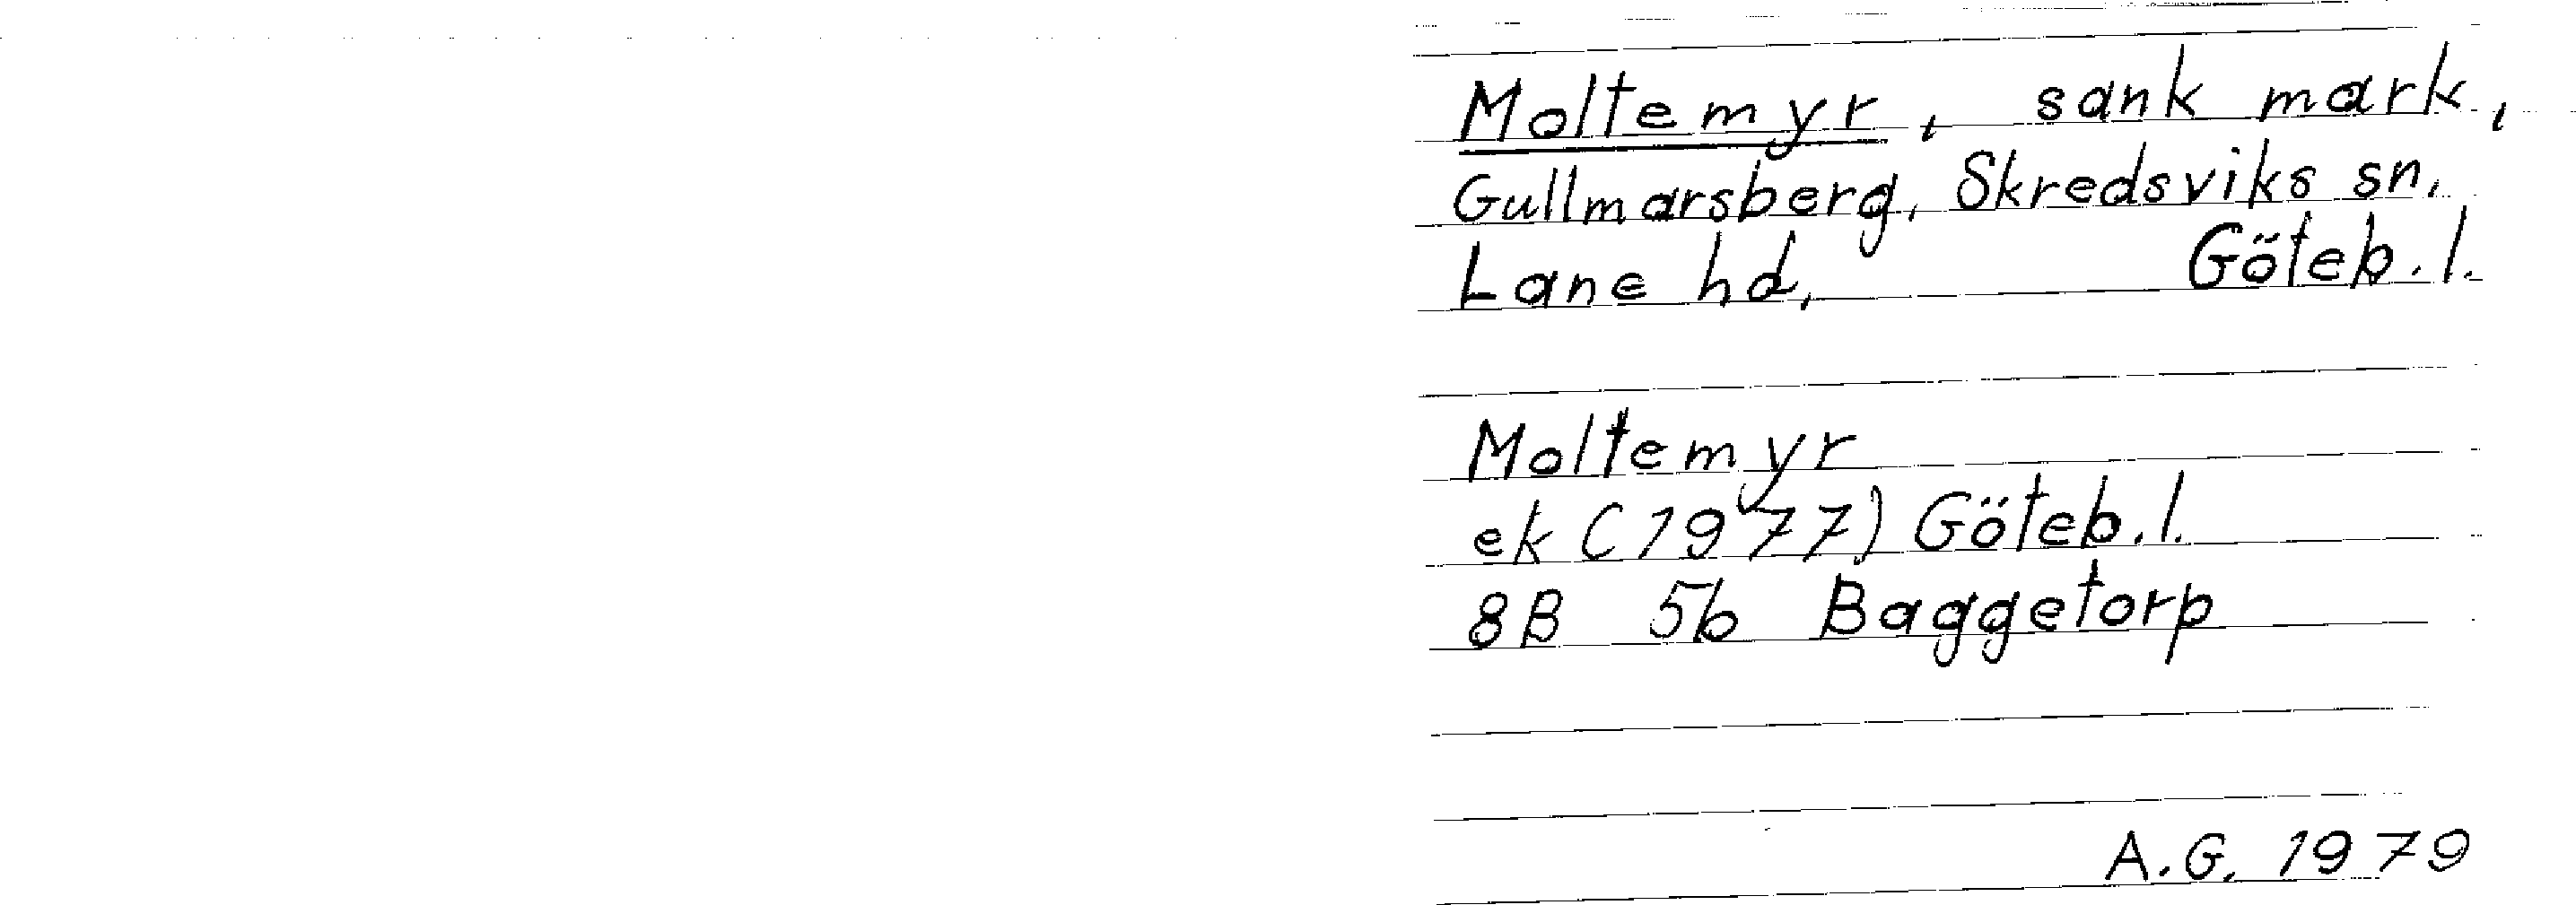 Moltemyr, sank mark,
Gullmarsberg, Skredsviks sn,
Lane hd, Göteb.l.
Moltemyr
ek (1977) Göteb.l.
8B 5b Baggetorp
A.G. 1979